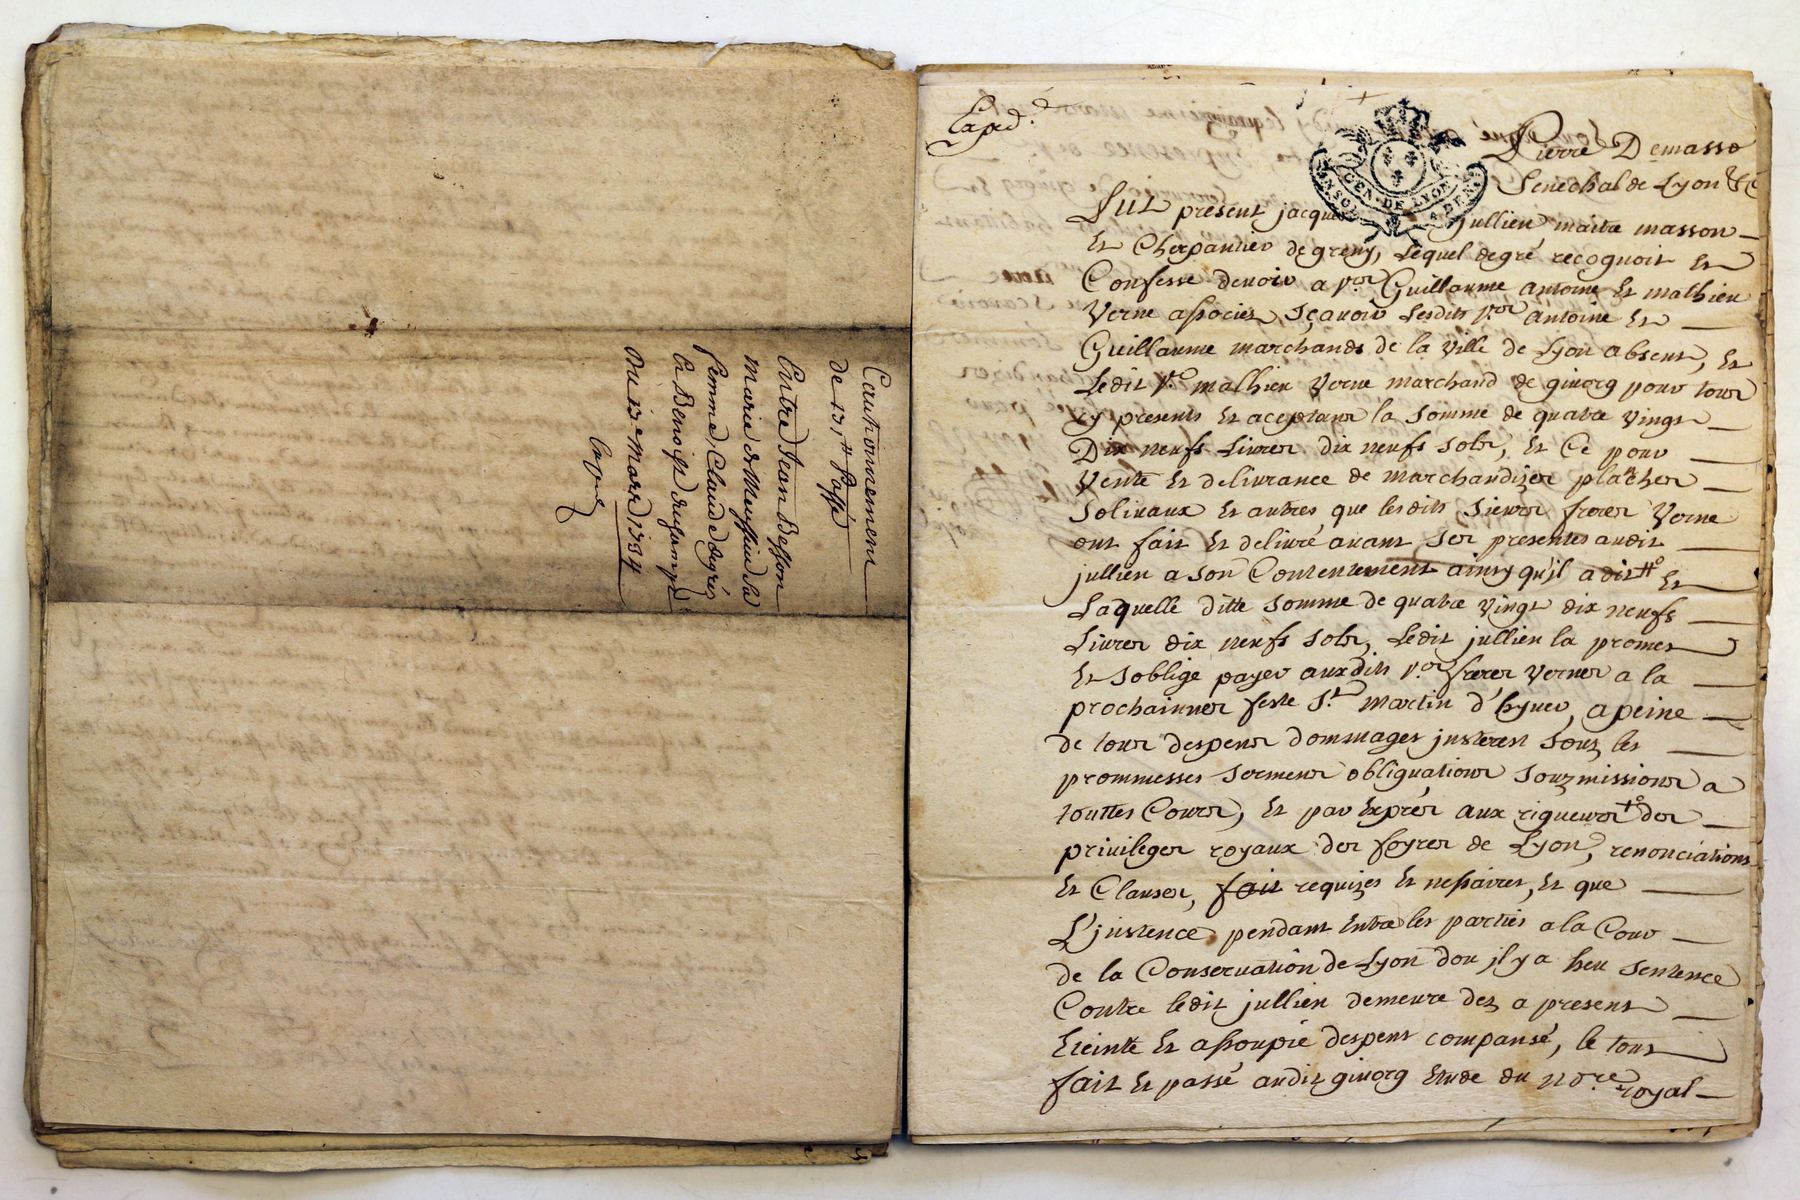 Cautionnement
de 131ᵗᵗ passé
Entre Jean Besson
Marie Meyssieu sa
femme, Claude degrés
et Benoiste
Du 13e Mars 1734
Exped.
GEN. DE LYON
Pierre Demasso
Senechal de Lyon &c
Fut present jacques jullien maitre masson
Et Cherpantier de greny, Lequel de gré recognoit Et
Confesse devoir a srs Guillaume antoine Et mathieu
Verne associés, sçavoir Lesdits srs antoine Et
Guillaume marchands de la ville de Lyon absens, Et
Ledit sr mathieu Verne marchand de givorg pour tous
cy presents Et aceptans la somme de quatre vingt
Dix neufs Livres dix neufs sols, Et Ce pour
Vente Et delivrance de marchandizes planches
solivaux Et autres que lesdits sieurs freres Verne
ont fait Et delivré avant ses presentes audit
jullien a son Contentement ainsy qu'il a dit Et
Laquelle ditte somme de quatre vingt dix neufs
Livres dix neufs sols, Ledit jullien la promet
Et soblige payer auxdits srs freres Vernes a la
prochainnes feste St martin d'hyver, a peine
de tous despens dommages jnterest souz les
prommesses sermens obliguations souzmissions a
touttes Cours, Et par Exprés aux rigueurs des
privileges royaux des foyres de Lyon, renonciations
Et Clauses, fait requizes Et nessaires, Et que
L'jnstence pendant Entre les parties a la Cour
de la Conservation de Lyon dou jl y a heu sentence
Contre ledit jullien demeure dez a present
Eteinte Et assoupie despens compansé, le tout
fait Et passé audit givorg Etude du nore royal